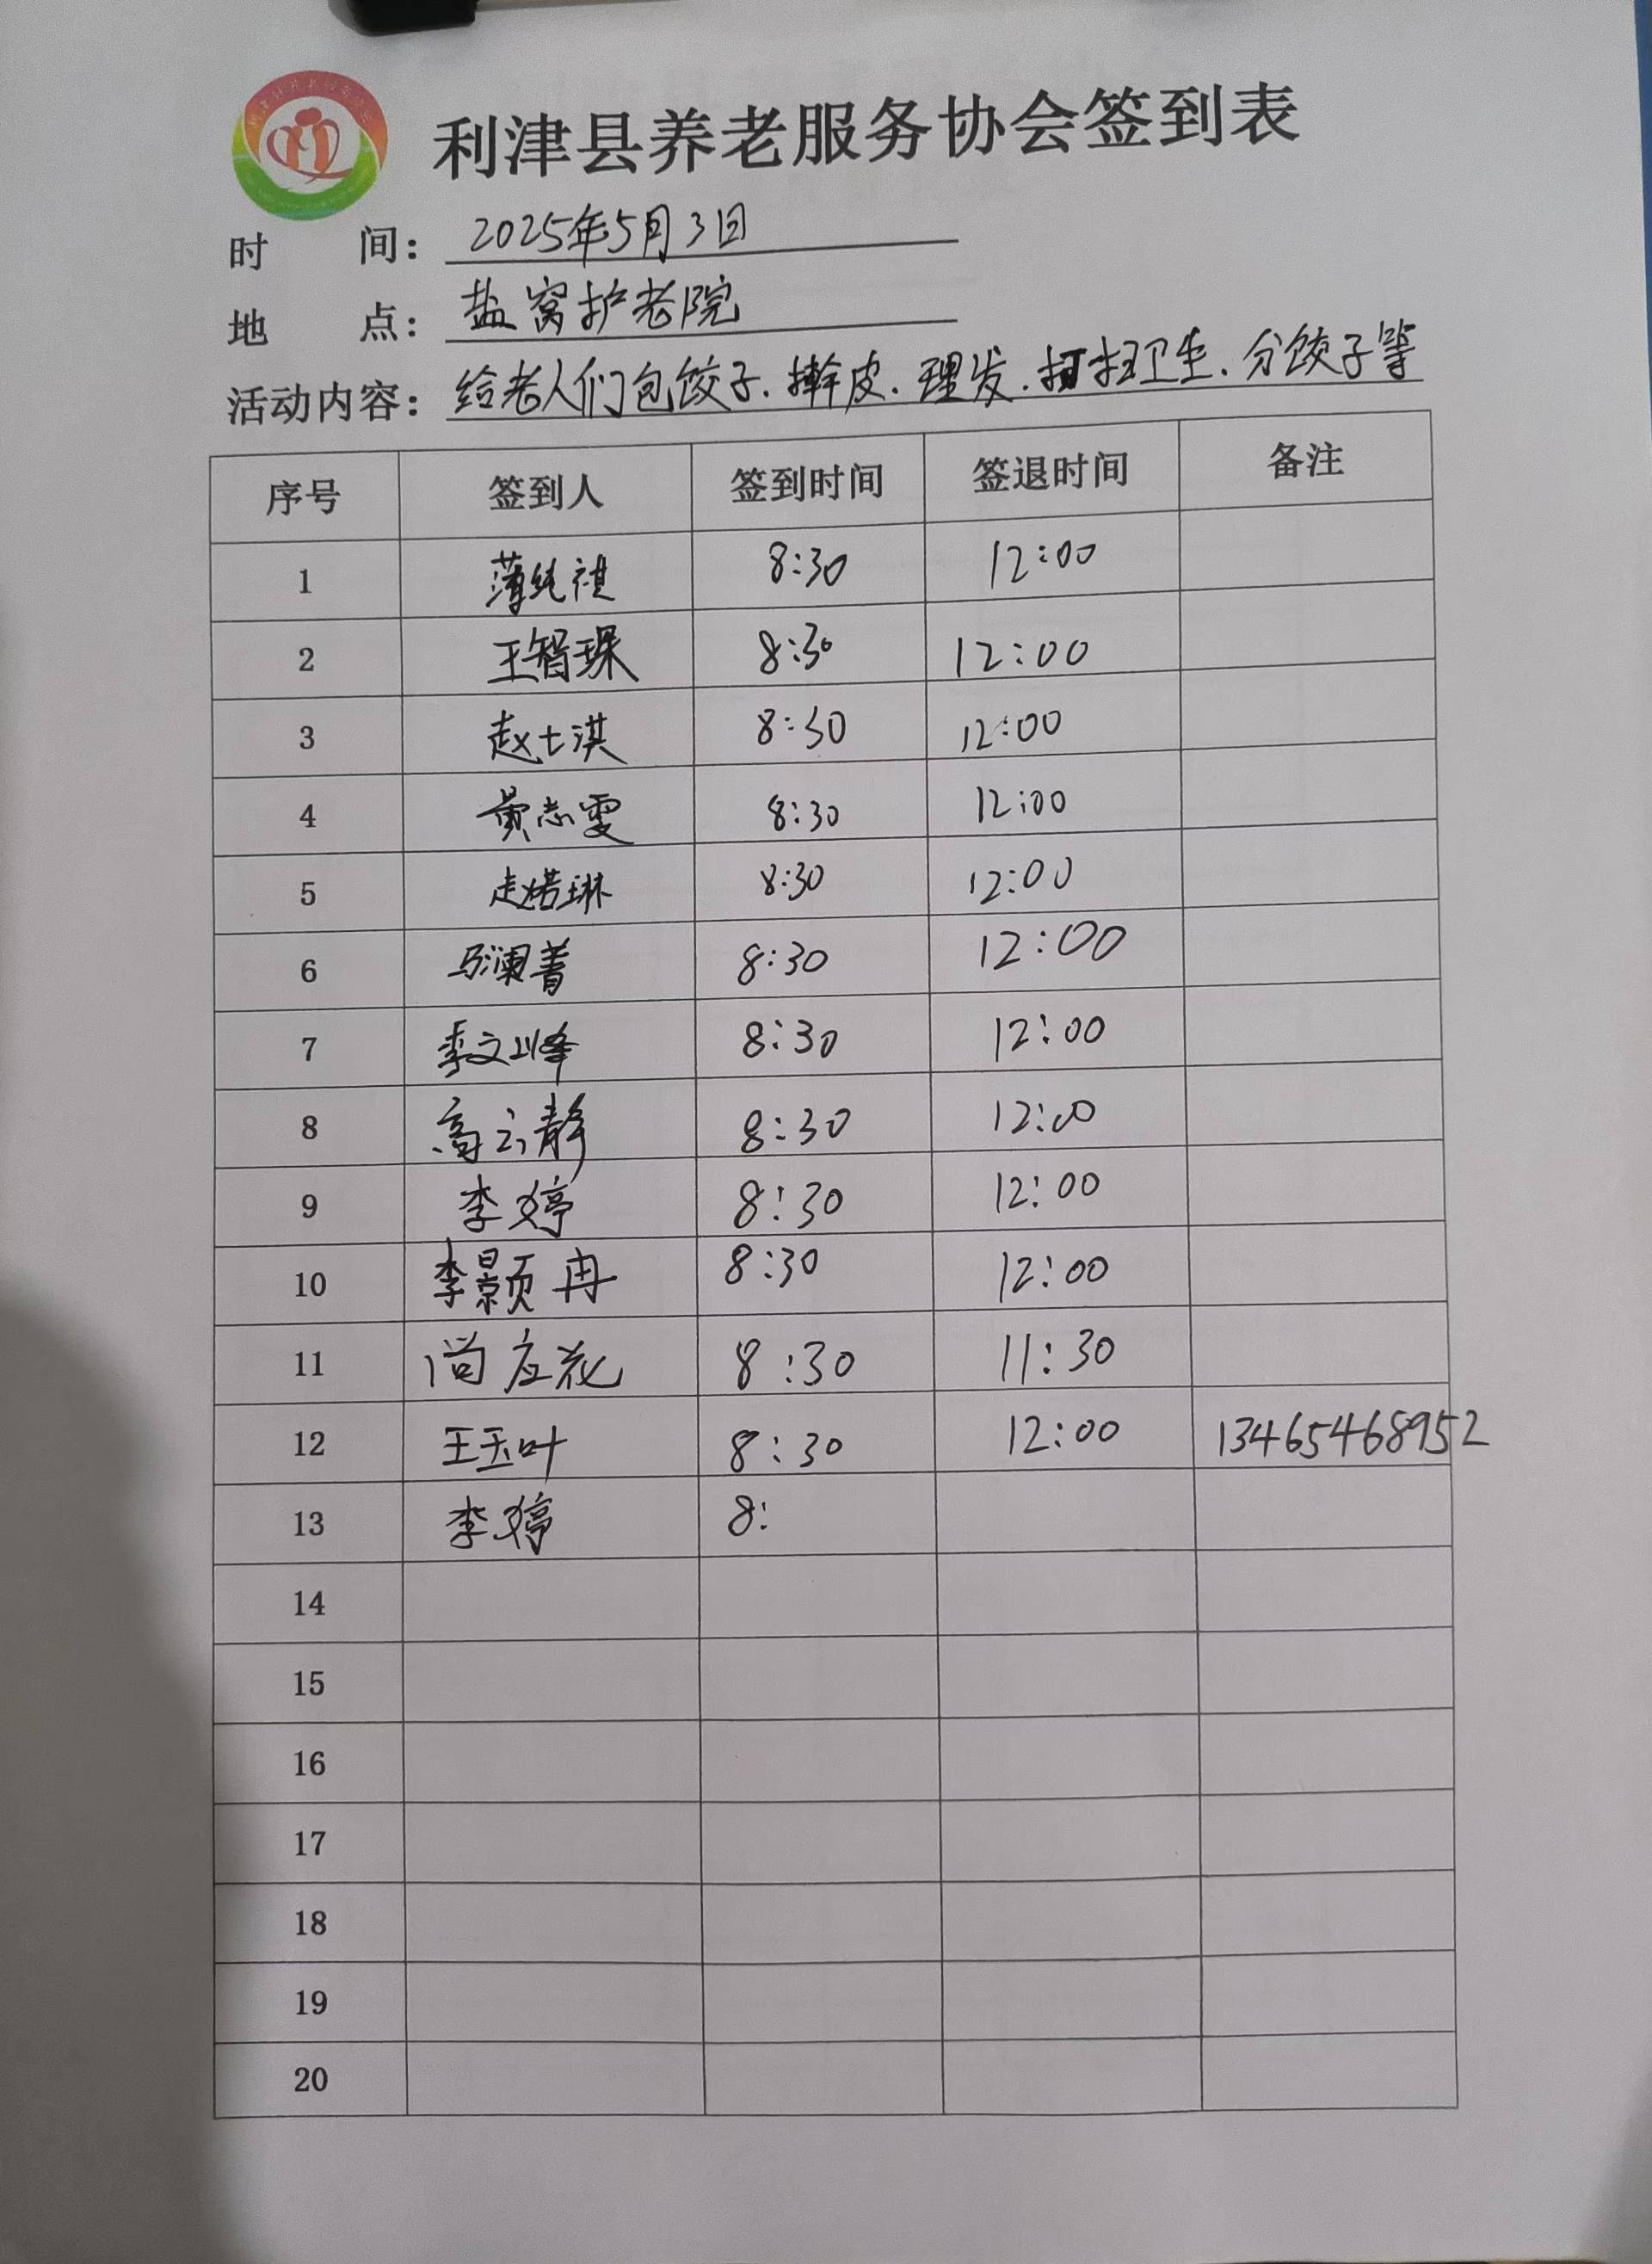 利津县养老服务协会签到表
时 间： 2025年5月3日
地 点： 盐窝护老院
活动内容： 给老人们包饺子.擀皮.理发.打扫卫生.分饺子等
序号 签到人 签到时间 签退时间 备注
1 薄纯祺 8:30 12:00
2 王智琛 8:30 12:00
3 赵士淇 8:30 12:00
4 黄志雯 8:30 12:00
5 赵若琳 8:30 12:00
6 马澜菁 8:30 12:00
7 李文峰 8:30 12:00
8 高云静 8:30 12:00
9 李婷 8:30 12:00
10 李颢冉 8:30 12:00
11 尚应花 8:30 11:30
12 王玉叶 8:30 12:00 13465468952
13 李婷 8:
14
15
16
17
18
19
20